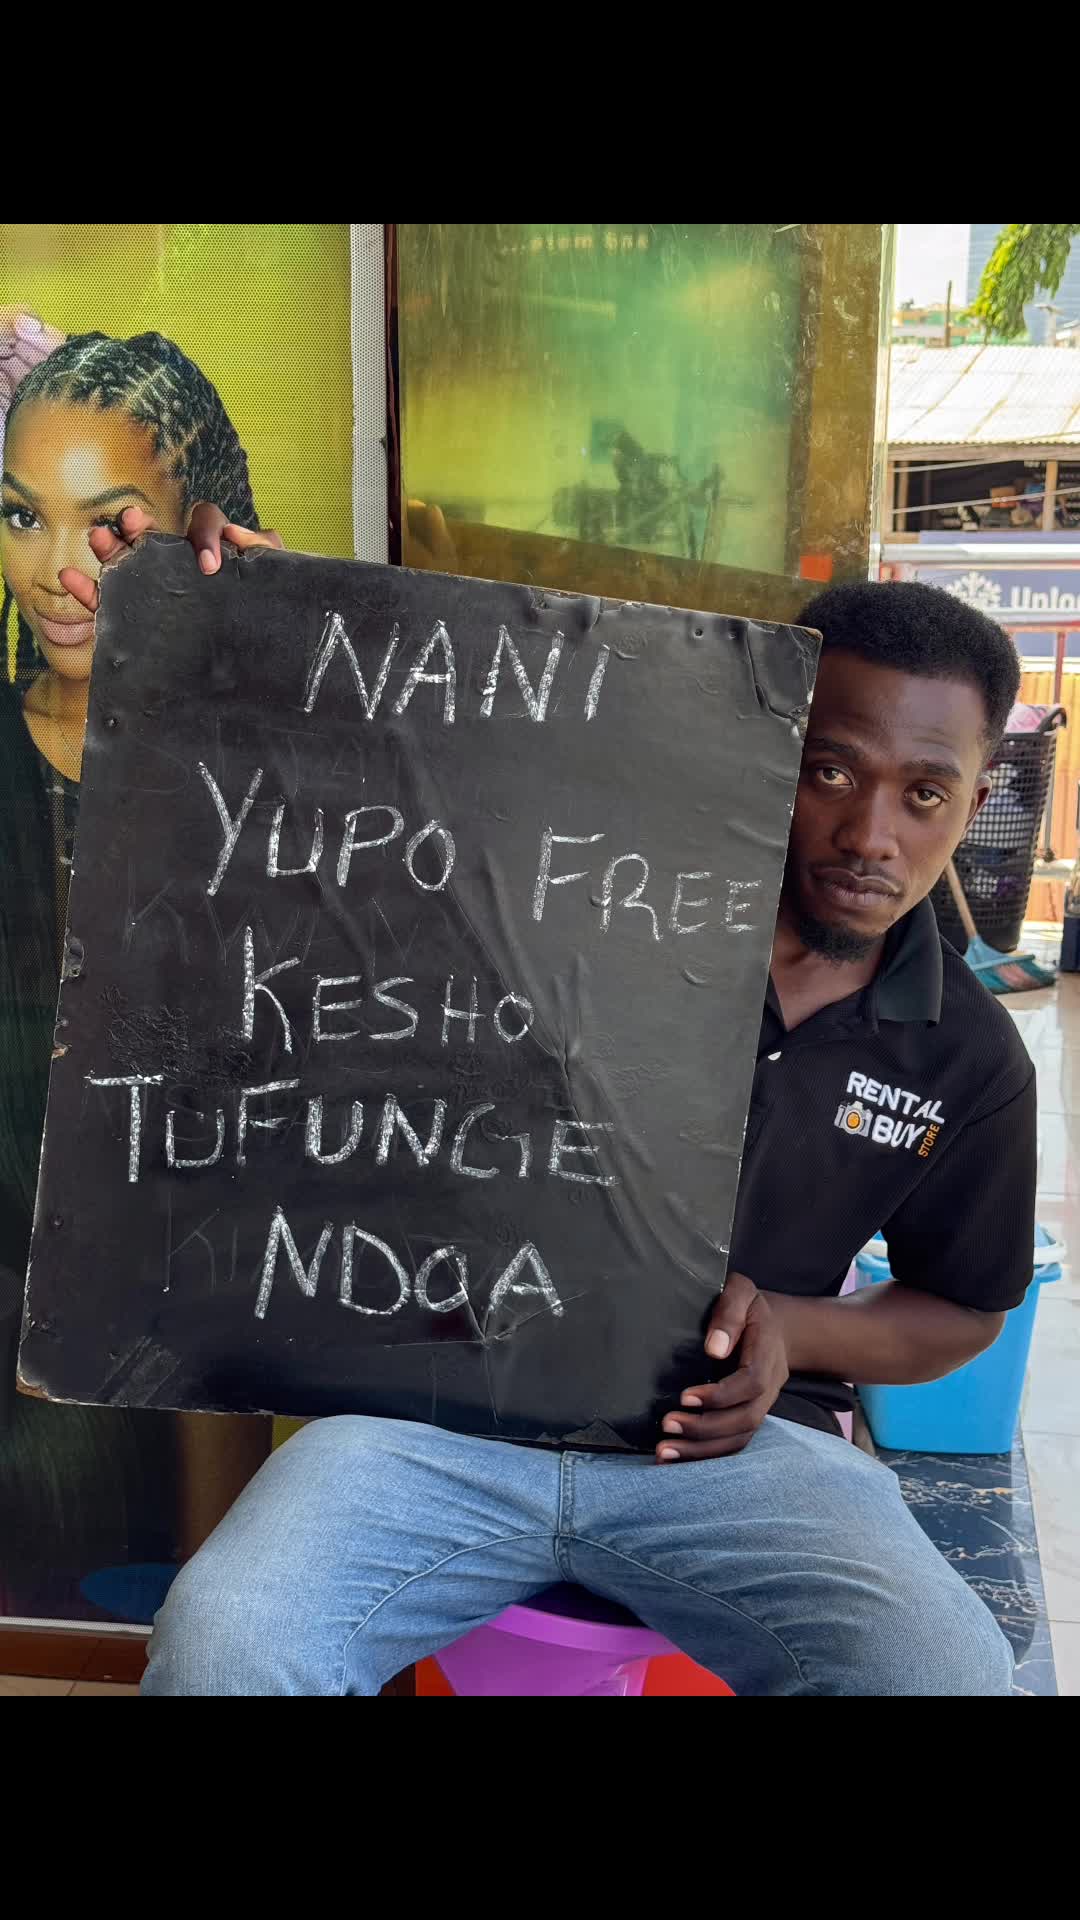 NANI
YUPO FREE
KESHO
TUFUNGE
NDOA
RENTAL
BUY
STORE